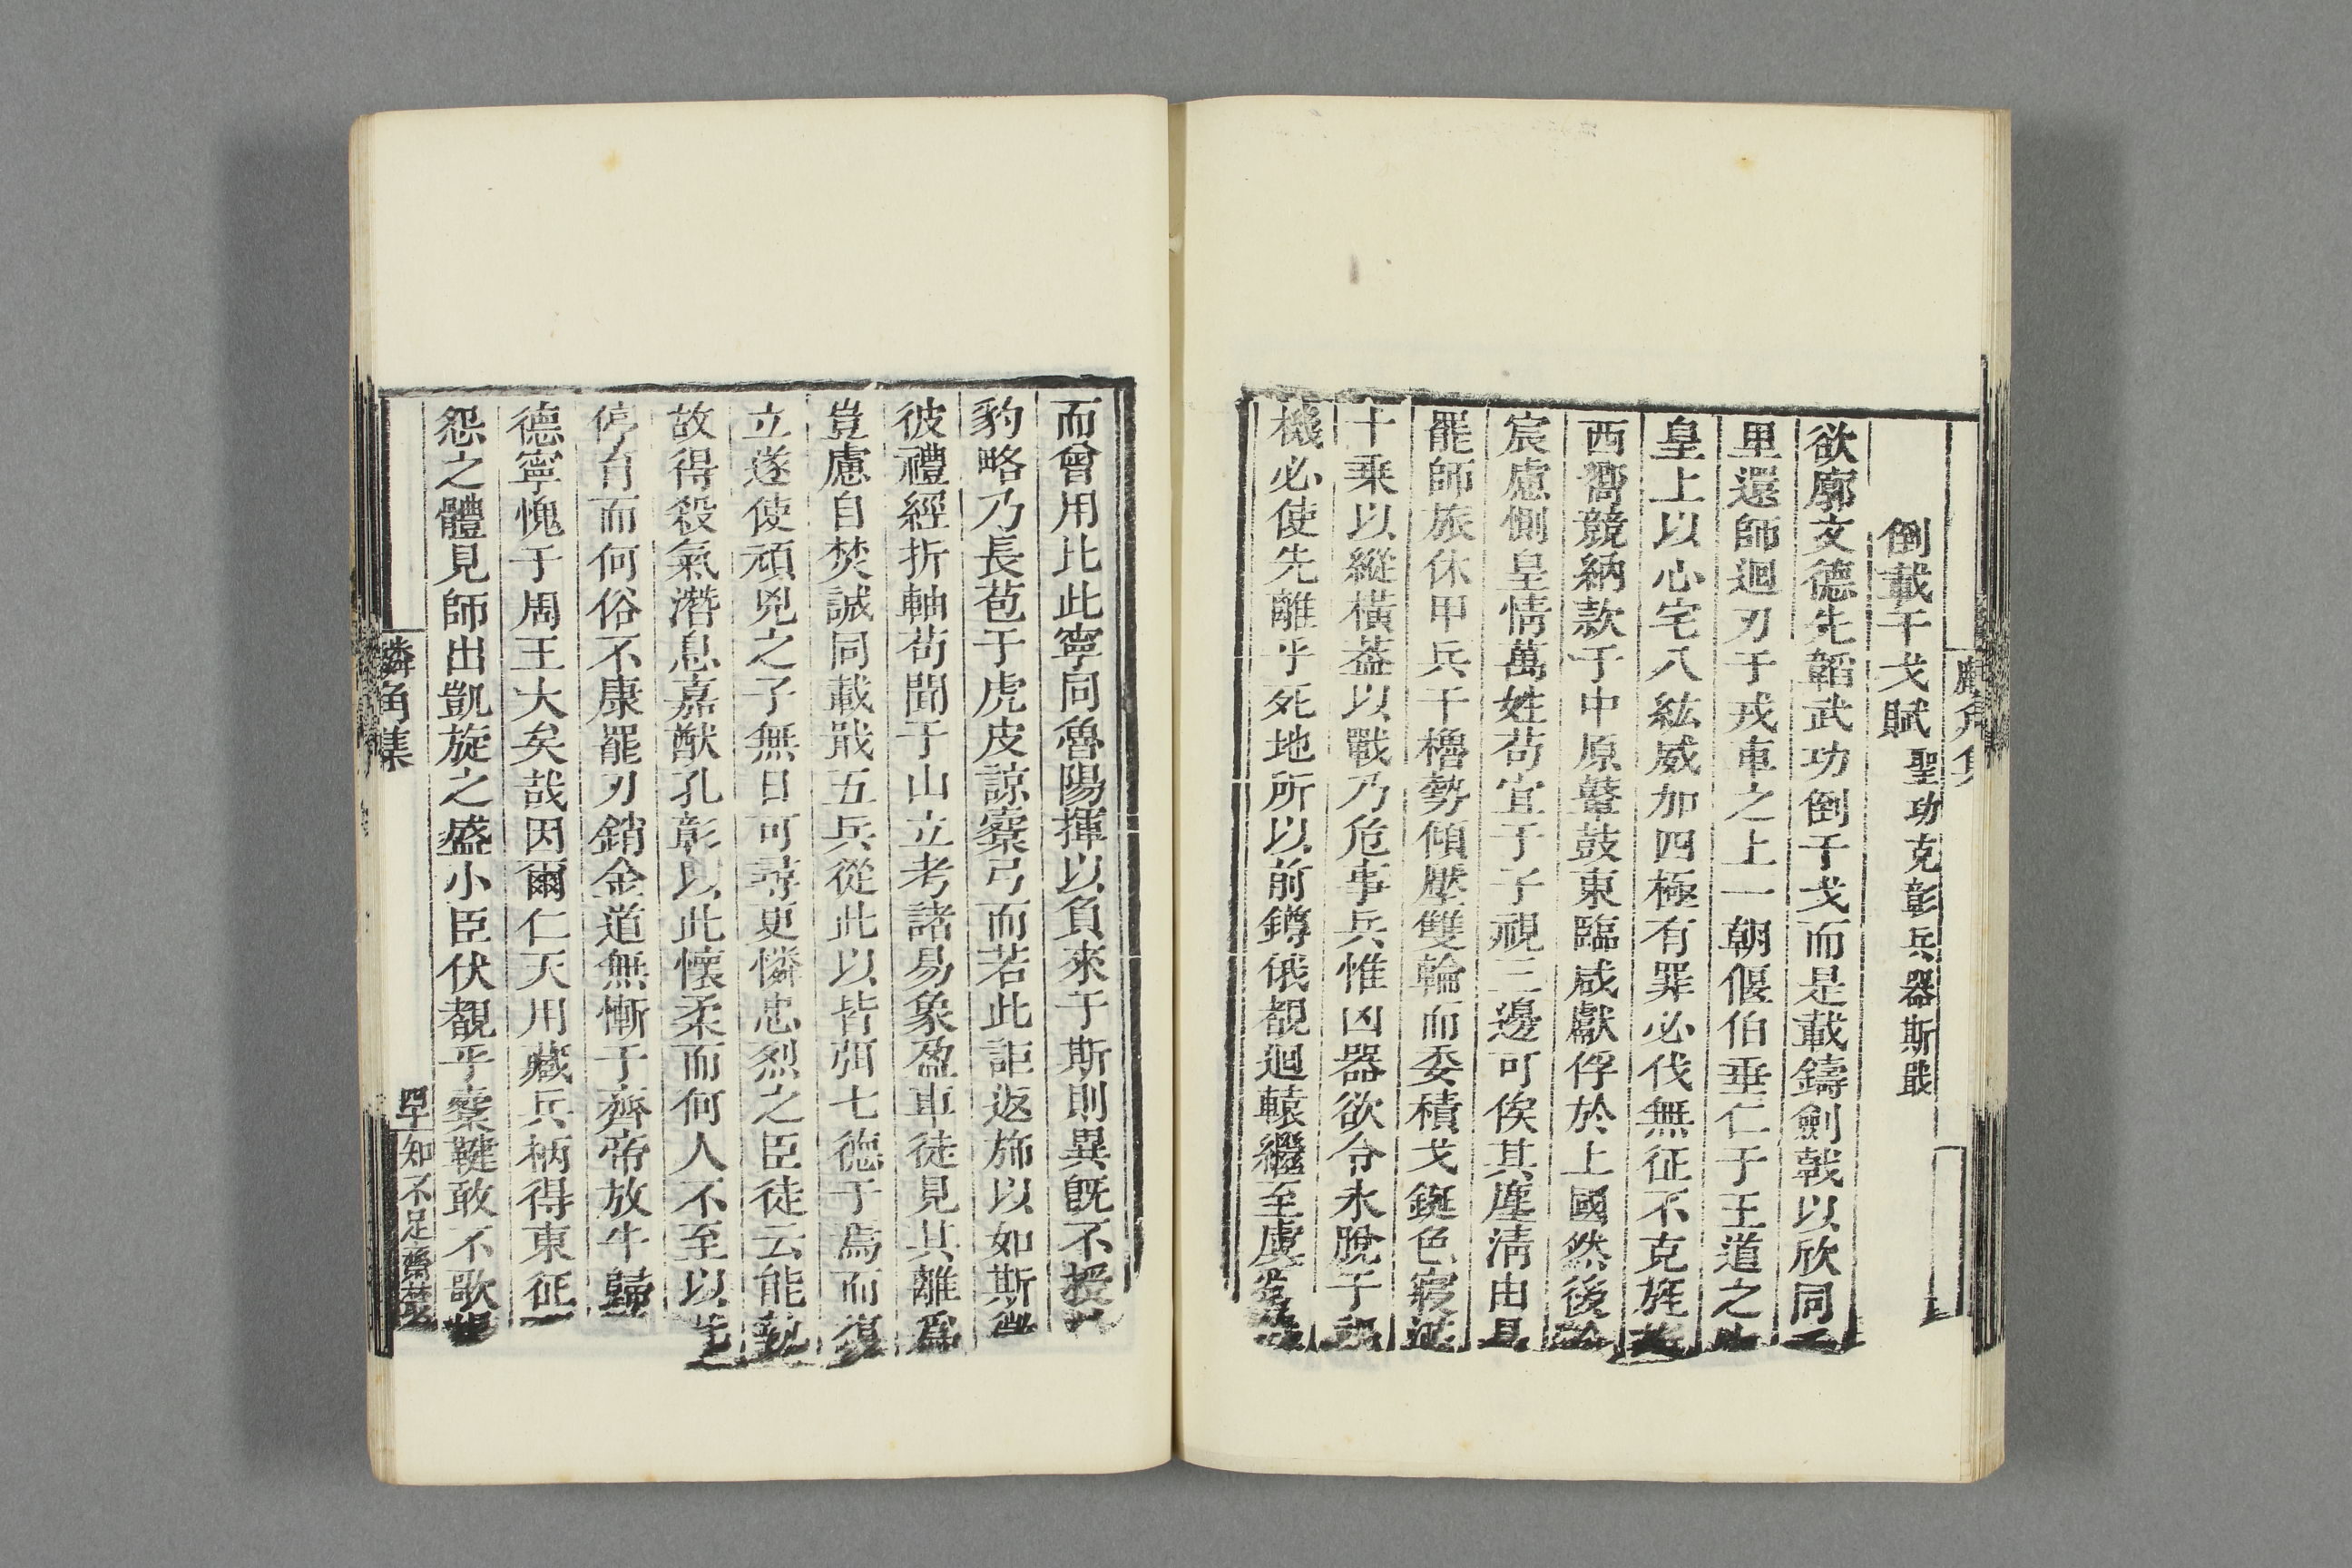 倒載干戈賦 聖功克彰兵器斯戢
欲廓文德先韜武功倒干戈而是載鑄劍戟以欣同
里還師迴刃于戎車之上一朝偃伯垂仁于王道之
皇上以心宅八紘威加四極有罪必伐無征不克旄
西裔競納款于中原鼙鼓東臨咸獻俘於上國然後
宸慮惻皇情萬姓苟宜于子視三邊可俟其塵淸由是
罷師旅休甲兵干櫓勢傾壓雙輪而委積戈鋋色寢
十乘以縱橫葢以戰乃危事兵惟凶器欲令永脫于
機必使先離乎死地所以前鐏俄覩迴轅繼至虞
而曾用比此寧同魯陽揮以負來于斯則異旣不授
豹略乃長苞于虎皮諒櫜弓而若此詎返斾以如斯
彼禮經折軸茍聞于山立考諸易象盈車徒見其離爲
豈慮自焚誠同載戢五兵從此以皆弭七德于焉而復
立遂使頑兇之子無日可尋更憐忠烈之臣徒云能執
故得殺氣潛息嘉猷孔彰以此懷柔而何人不至以
停育而何俗不康罷刃銷金道無慚于齊帝放牛歸
德寧愧于周王大矣哉因爾仁天用藏兵柄得東征
怨之體見師出凱旋之盛小臣伏覩乎櫜鞬敢不歌
麟角集 知不足齋叢